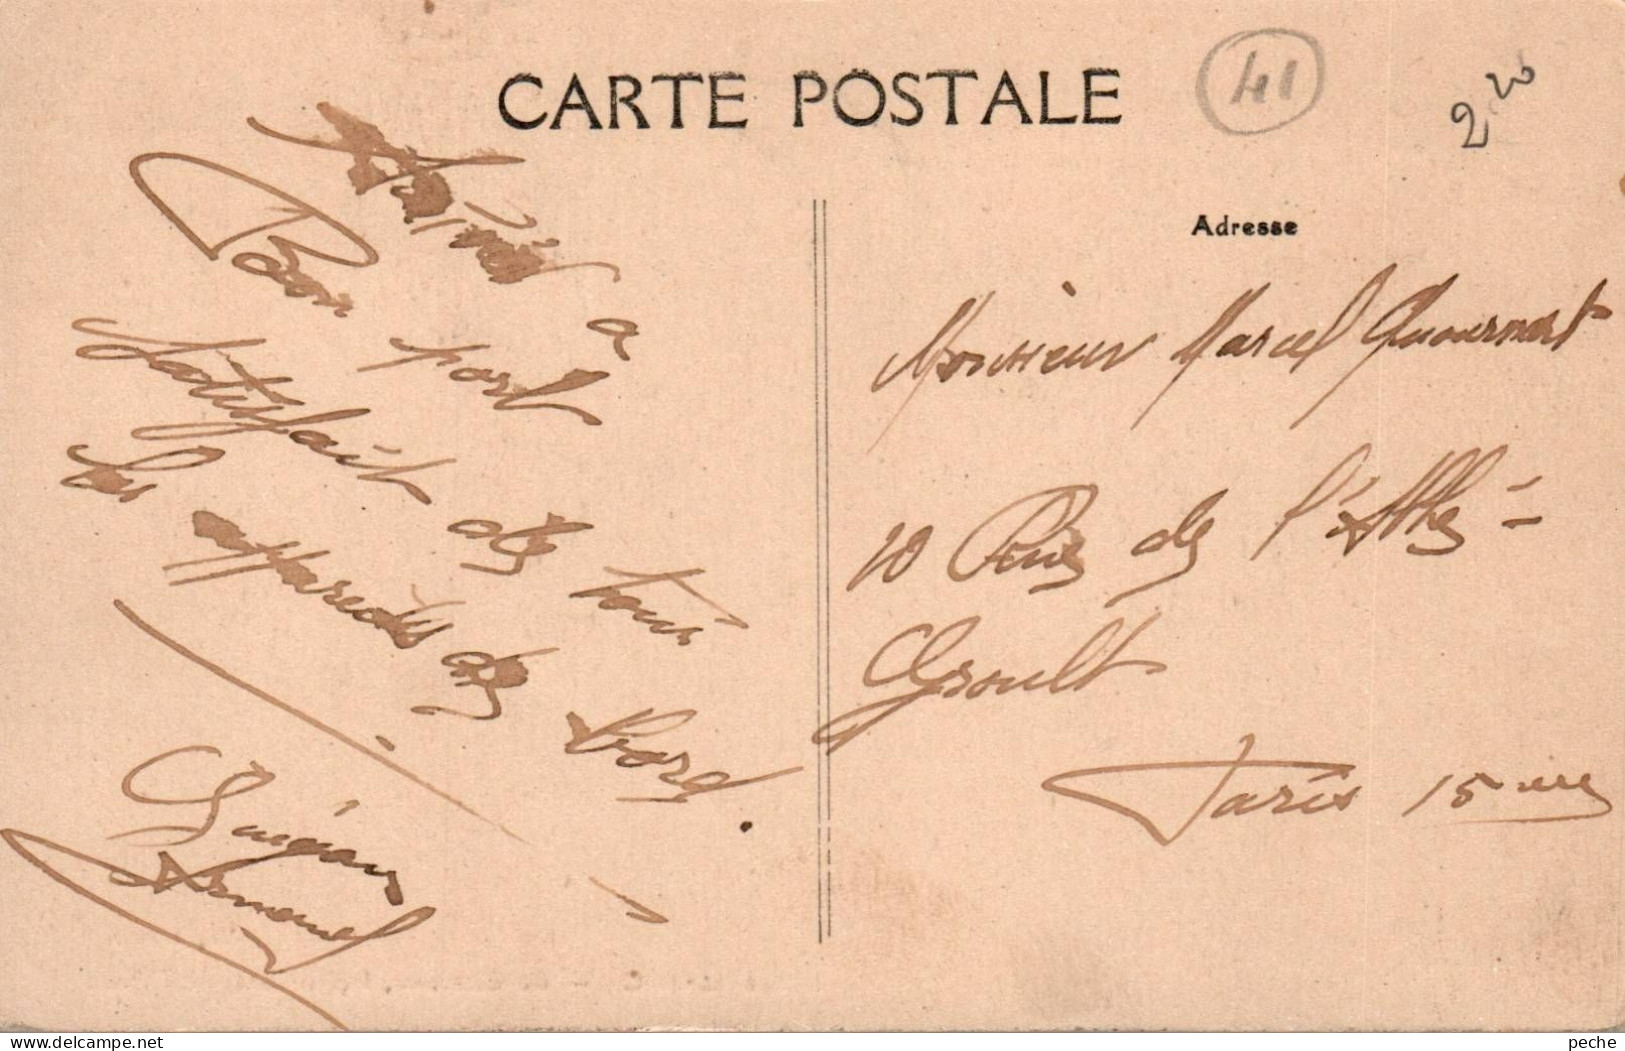 CARTE POSTALE
41
2 20
Adresse
Arrivé a
Bon port
satisfait de tous
les appareils de
bord.
Armand
Monsieur Marcel
10 Rue de l'Abbé =
Groult
Paris 15 me
delcampe.net
peche